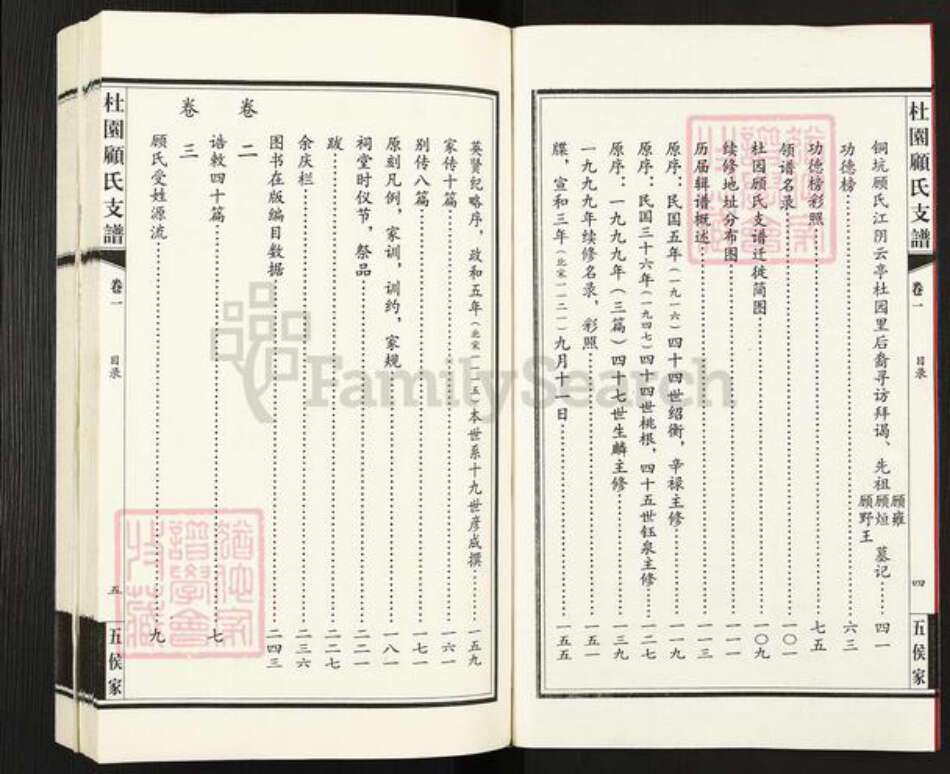 杜園顧氏支譜
卷一
目录
四
五侯家
铜坑顾氏江阴云亭杜园里后裔寻访拜谒、先祖顾雍 顾烜 顾野王 墓记……四一
功德榜……六三
功德榜彩照……七五
领谱名录……一〇一
杜园顾氏支谱迁徙简图……一〇九
续修地址分布图……一一一
历届辑谱概述……一一三
原序：民国五年（一九一六）四十四世绍衡，辛禄主修……一一九
原序：民国三十六年（一九四七）四十四世桃根，四十五世钰泉主修……一二七
原序：一九九九年（三篇）四十七世生麟主修……一三九
一九九九年续修名录，彩照……一五一
牒，宣和三年（北宋一一二一）九月十一日……一五五
英贤纪略序，政和五年（北宋一一一五）本世系十九世彦成撰……一五九
家传十篇……一六一
别传八篇……一七一
原刻凡例，家训，训约，家规……一八一
祠堂时仪节，祭品……二二一
跋……二二七
余庆栏……二三六
图书在版编目数据……二四三
卷二
诰敕四十篇……七
卷三
顾氏受姓源流……九
杜園顧氏支譜
卷一
目录
五
五侯家
FamilySearch